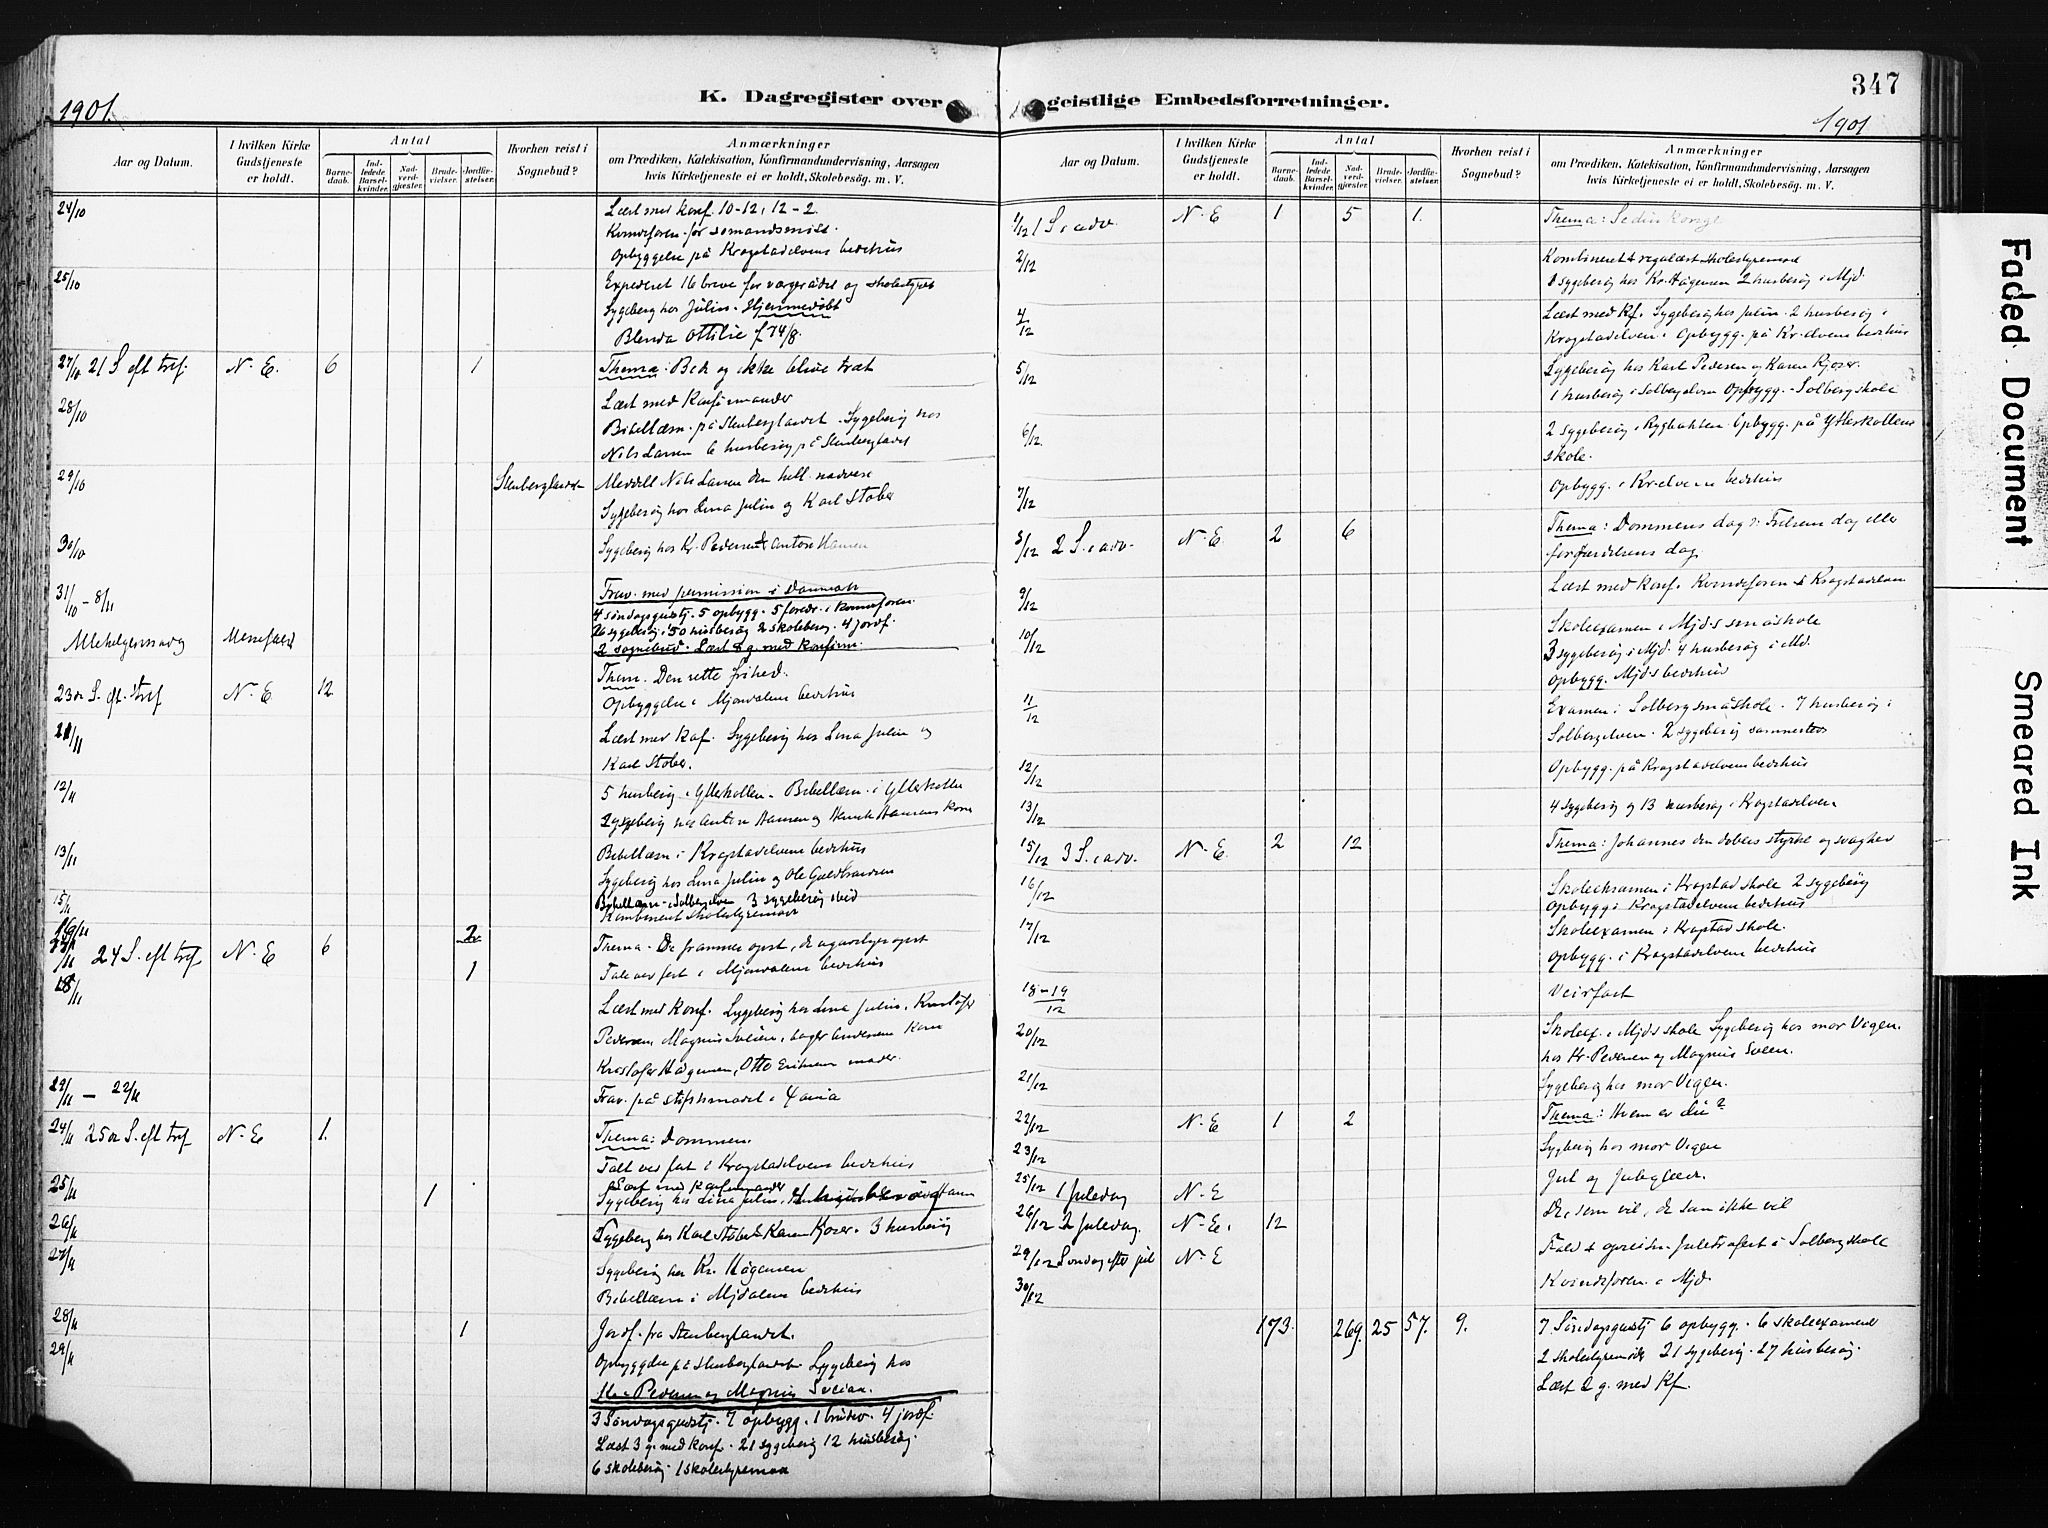 347
K. Dagregister over geistlige Embedsforretninger.
1901.
1901
Aar og Datum.
I hvilken Kirke Gudstjeneste er holdt.
Antal
Barnedaab.
Indledede Barselkvinder.
Nadverdgjæster.
Brudevielser.
Jordfæstelser.
Hvorhen reist i Sognebud?
Anmærkninger
om Prædiken, Katekisation, Konfirmandundervisning, Aarsagen
hvis Kirketjeneste ei er holdt, Skolebesøg. m. V.
24/10 Læst med konf. 10-12, 12-2.
Kvindeforen. for sømandsmiss.
Opbyggelse på Krogstadelvens bedehus
25/10 Expederet 16 breve for vergerådet og skolestyret
Sygebesøg hos Julin. Hjemmedøbt
Blenda Ottilie f. 14/8.
27/10 21 S. eft. tref. N. E. 6 1 Thema: Bed og ikke blive træt
28/10 Læst med Konfirmander
Bibellæsn. på Stenberglandet. Sygebesøg hos
Nils Larsen 6 husbesøg på Stenberglandet
29/10 Stenberglandet Meddelt Nils Larsen den hell. nadvere
Sygebesøg hos Lina Julin og Karl Stober
30/10 Sygebesøg hos Kr. Pedersen & Anton Hansen
31/10 - 8/11 Frav. med permission i Danmark
4 søndagsgustj. 5 opbygg. 5 foredr. i kvinneforen.
26 sygebesøg 50 husbesøg 2 skolebesøg. 4 jordf.
2 sognebud. Læst 8 g. med konfirm.
Allehelgensdag Messefald
23de S. eft. tref N. E 12 Thema. Den rette frihed.
Opbyggelse i Mjøndalens bedehus
11/11 Læst med Konf. Sygebesøg hos Lina Julin og
Karl Stober.
12/11 5 husbesøg i Ytterkollen. Bibellæsn. i Ytterkollen
Sygebesøg hos Anton Hansen og Henrik Hansens kone
13/11 Bibellæsn i Krogstadelvens bedehus
Sygebesøg hos Lina Julin og Ole Guldbrandsen
15/11 Bibellæsn i Solbergelven 3 sygebesøg
Kombineret skolestyremøde
24 S. eft tref N. E 6 2 Thema.
1 Tale ved fest i Mjøndalens bedehus
18/11 Læst med konf. Sygebesøg hos Lina Julin, Kristofer
Pedersen, Magnus Sveien, bager Andersens Kone
Kristofer Hågensen, Otto Eriksens moder.
- 22/11 Frav. på stiftsmødet i
24/11 25de S. eft tref N. E 1. Thema: Dommen.
Talt ved fest i Krogstadelvens bedehus
25/11 1 Læst med Konfirmander
Sygebesøg hos Lina Julin,
26/11 Sygebesøg hos Karl Stober & Karen Kjøser. 3 husbesøg
27/11 Sygebesøg hos Kr. Hågensen
Bibellæsn i Mjdalens bedehus
28/11 1 Jordf. fra Stenberglandet.
29/11 Opbyggelse på Stenberglandet Sygebesøg hos
Kr. Pedersen og Magnus Sveian.
3 Søndagsgudstj. 7 opbygg. 1 brudev. 4 jordf.
Læst 3 g. med konf. 21 sygebesøg 12 husbesøg.
6 skolebesøg. 1 skolestyremøde
Aar og Datum.
I hvilken Kirke Gudstjeneste er holdt.
Antal
Barnedaab.
Indledede Barselkvinder.
Nadverdgjæster.
Brudevielser.
Jordfæstelser.
Hvorhen reist i Sognebud?
Anmærkninger
om Prædiken, Katekisation, Konfirmandundervisning, Aarsagen
hvis Kirketjeneste ei er holdt, Skolebesøg. m. V.
1/12 1 S. i adv. N. E 1 5 1. Thema: Se din konge
2/12 Kombineret & skolestyremøde
sygebesøg hos Kr. Hågensen 2 husbesøg i Mjd.
4/12 Læst med Kf. Sygebesøg hos Julin. 2 husbesøg i
Krogstadelven. Opbygg. på Kr. elvens bedehus
5/12 Sygebesøg hos Karl Pedersen og Karen Kjøser.
1 husbesøg i Solbergelven Opbygg. Solberg skole
6/12 2 sygebesøg i Opbygg. på Ytterkollens
skole.
7/12 Opbygg. i Kr. elvens bedehus
8/12 2 S. i adv. N. E 2 6 Thema: Dommens dag: Frelsens dag eller
fordærvelsens dag
9/12 Læst med konf. Kvindeforen i Krogstadelven
10/12 Skoleexamen i Mjds småskole
3 sygebesøg i Mjd. 4 husbesøg i Md.
Opbygg. Mjds bedehus
11/12 Examen i Solberg småskole. 7 husbesøg i
Solbergelven. 2 sygebesøg sammesteds
12/12 Opbygg. på Krogstadelvens bedehus
13/12 4 sygebesøg og 13 husbesøg i Krogstadelven
15/12 3 S. i adv. N. E. 2 12 Thema: Johannes den døbers styrke og svaghed
16/12 Skoleeksamen i Krogstad skole 2 sygebesøg
Opbygg i Krogstadelvens bedehus
17/12 Skoleexamen i Krogstad skole.
Opbygg. i Krogstadelvens bedehus
18-19/12 Veirfast
20/12 Skoleex. i Mjds skole Sygebesøg hos mor Vigen.
hos Kr. Pedersen og Magnus Sveen.
21/12 Sygebesøg hos mor Vigen.
22/12 N. E 1 2 Thema: Hvem er du?
23/12 Sygebesøg hos mor Vigen
25/12 1 juledag N. E Jul og juleglæde.
26/12 2 juledag N. E. 12 De, som vil, de som ikke vil
29/12 Søndag efter jul N. E Juletræfest i Solberg skole
30/12 Kvindeforen. i Mjd.
173. 269. 25 57. 9. 7 Søndagsgustj 6 opbygg. 6 skoleexamener
2 skolestyremøder 21 sygebesøg. 27 husbesøg.
Læst 2 g. med Kf.
Faded Document
Smeared Ink